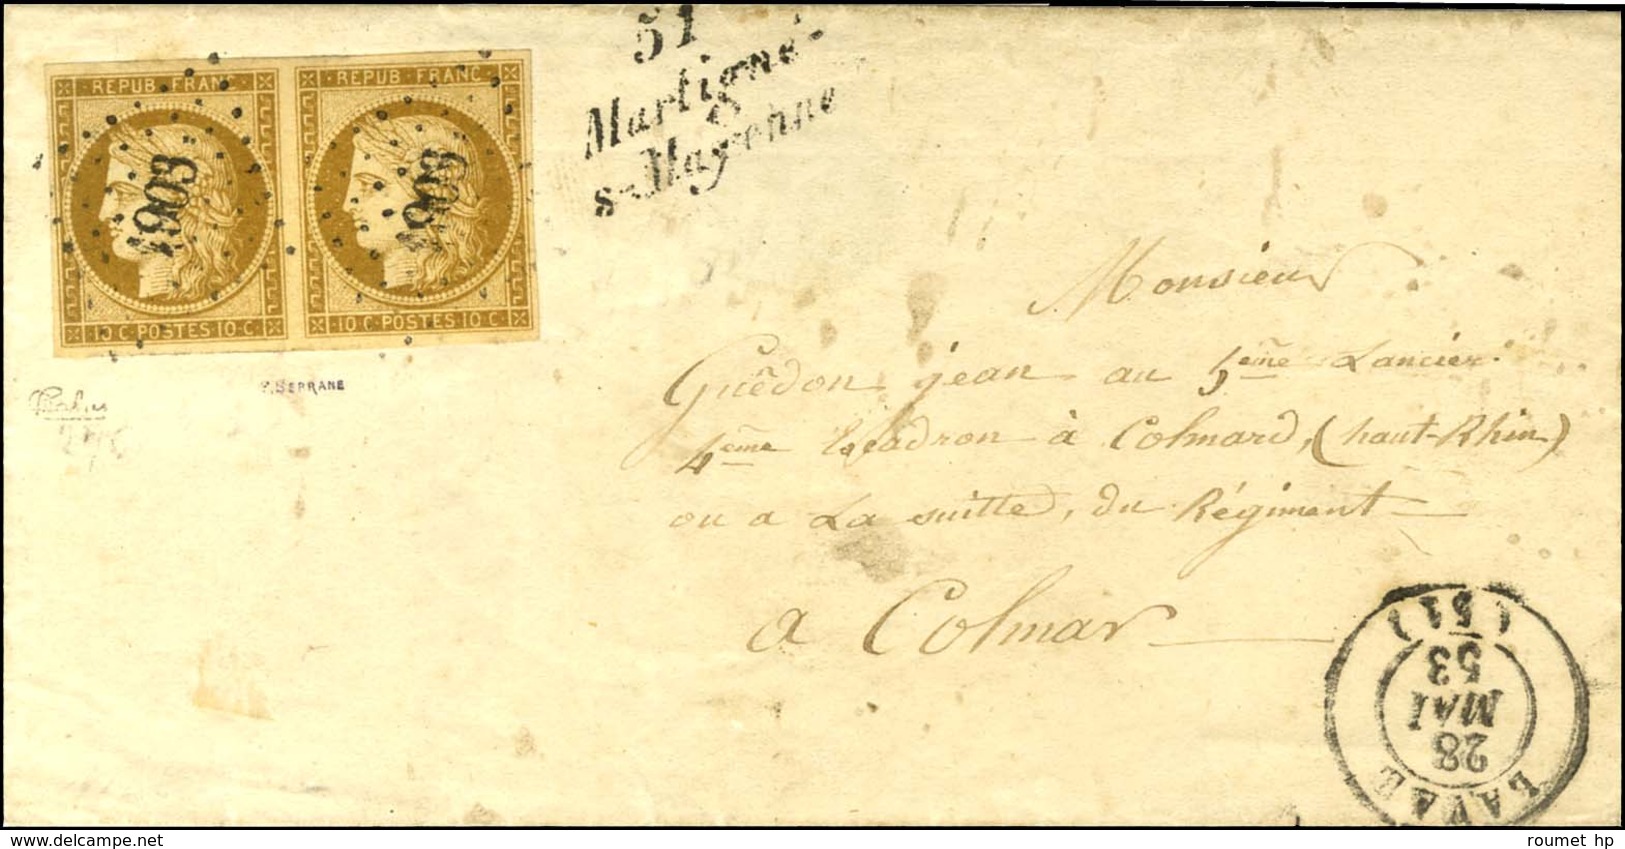 51
Martigné-
s-Mayenne
REPUB. FRANC.
1903
10 C. POSTES 10 C.
REPUB. FRANC.
1903
10 C. POSTES 10 C.
SERRANE
Monsieur
Guêdon jean au 5eme Lancier
4eme Escadron à Colmard, (haut-Rhin)
ou a La suitte, du Régiment
a Colmar
LAVAL
28
MAI
53
(51)
delcampe.net
roumet hp